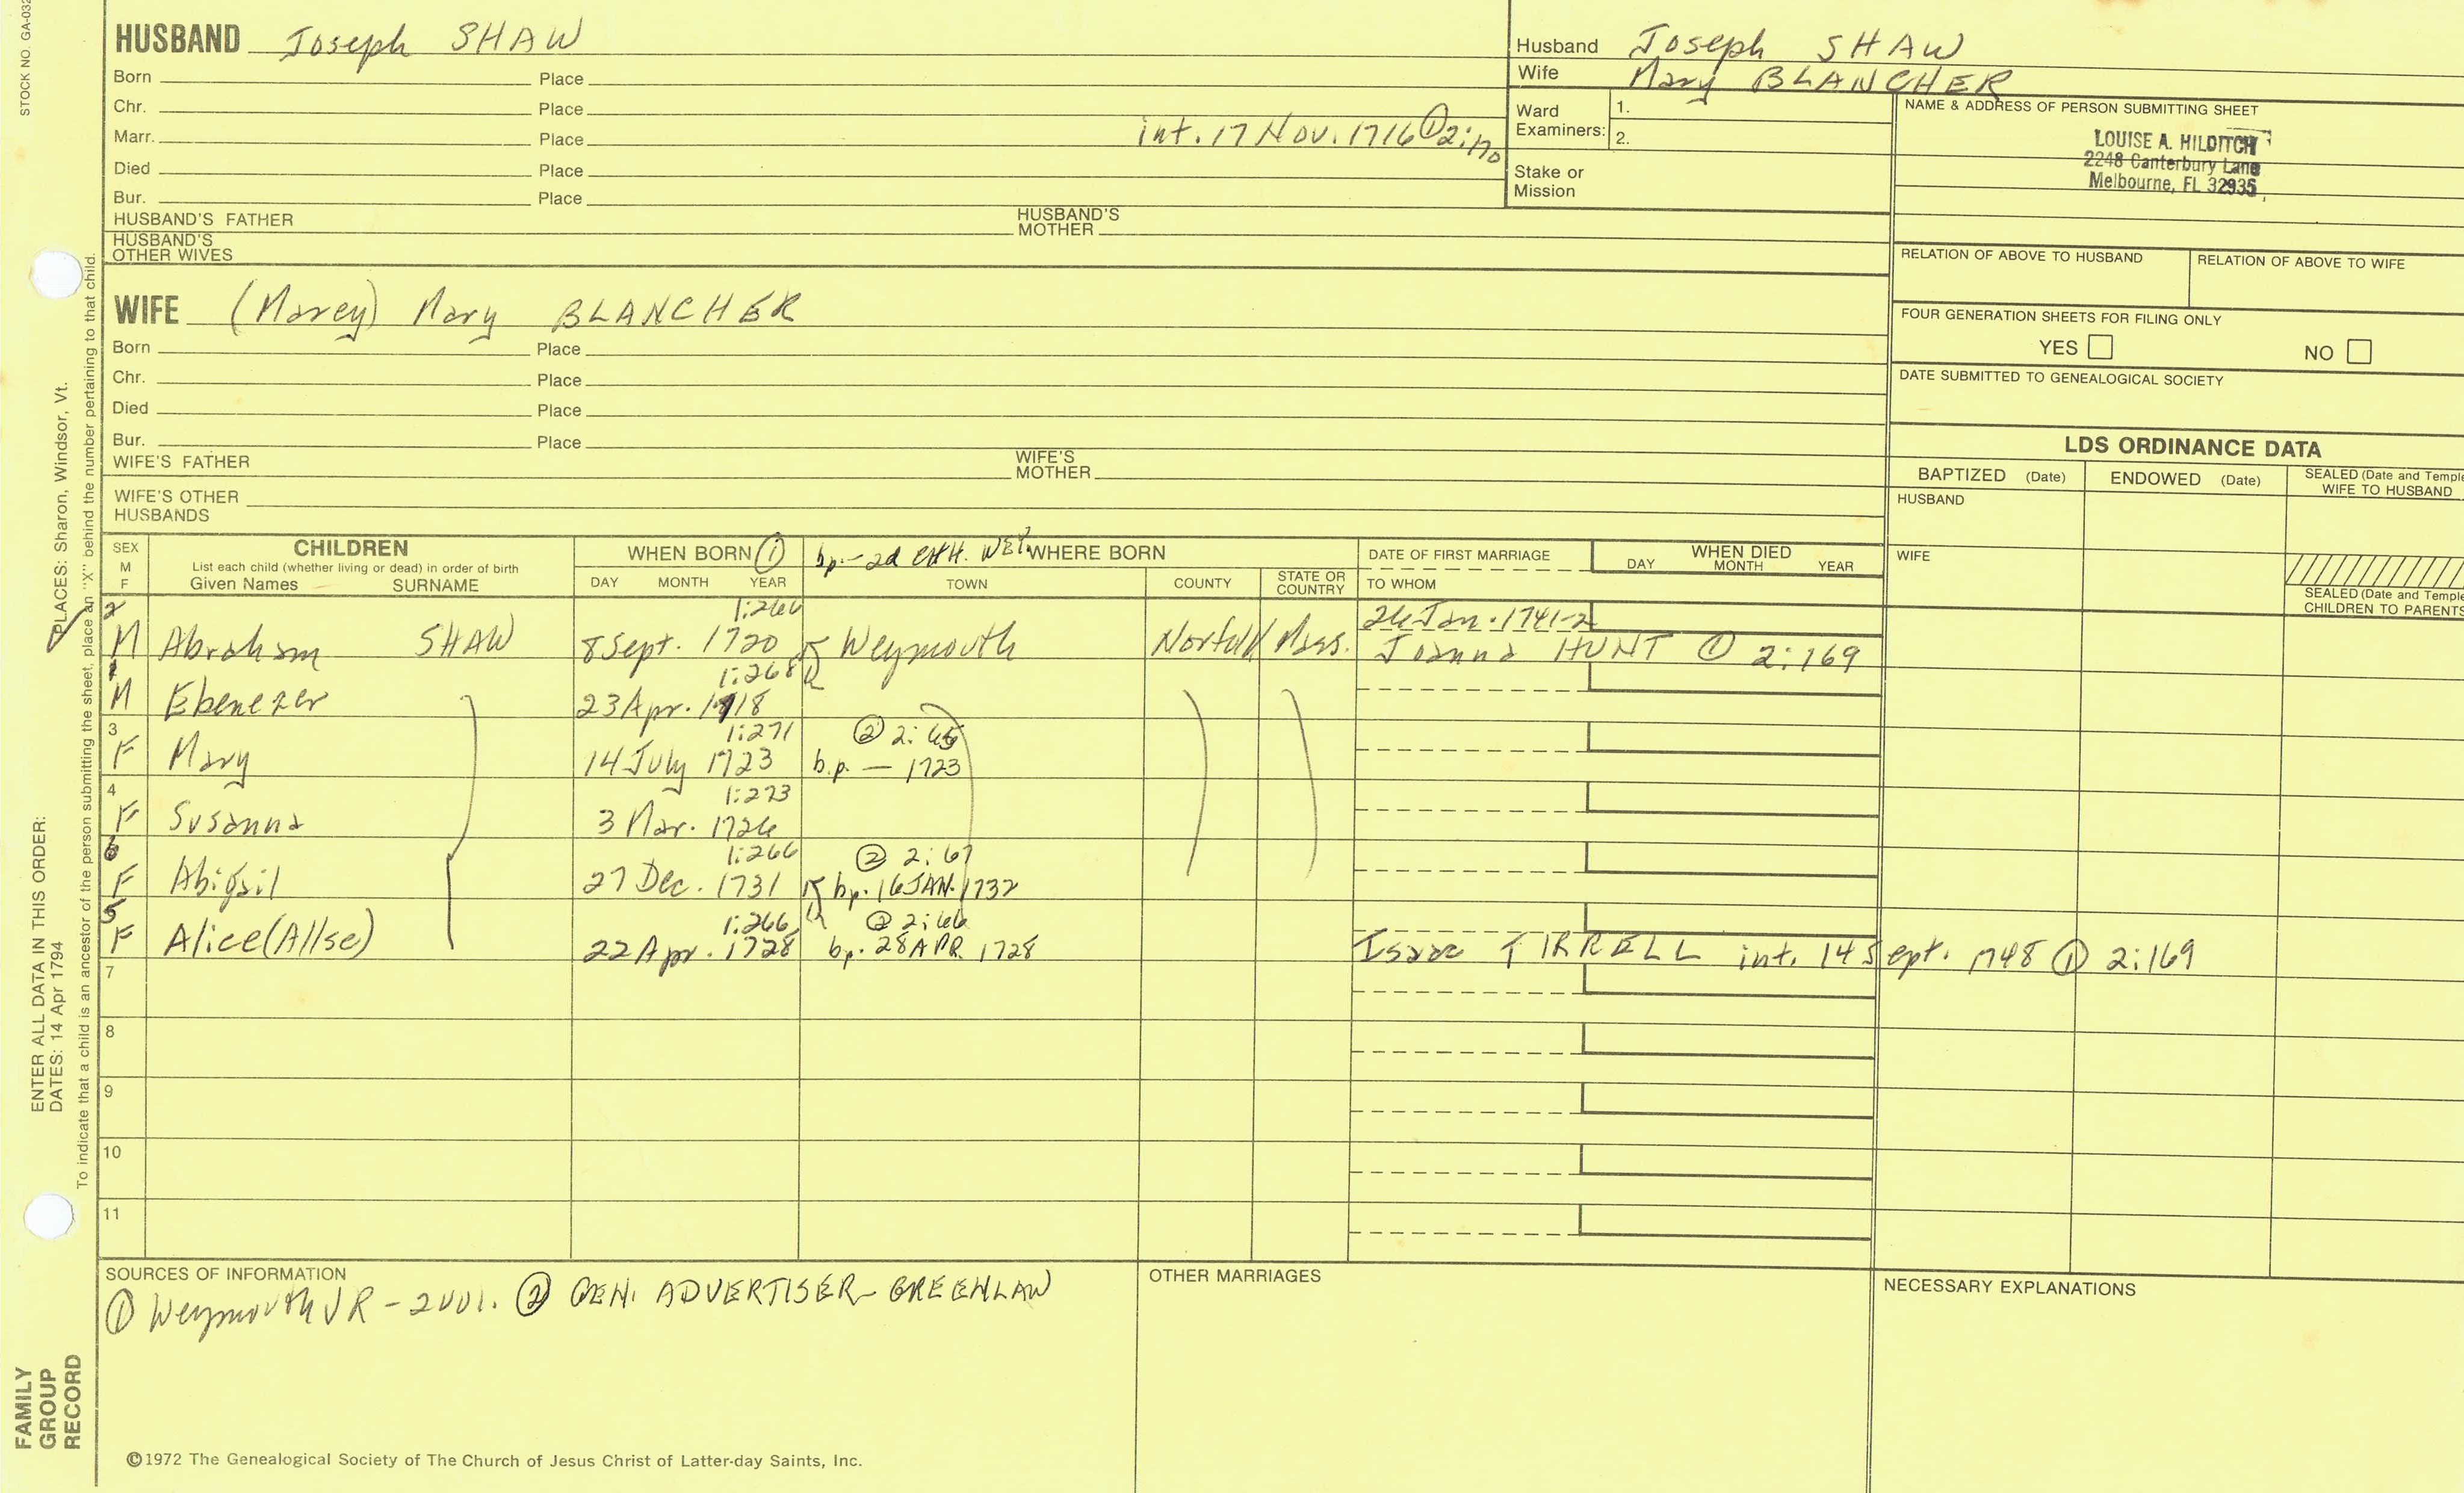 STOCK NO. GA-032
HUSBAND Joseph SHAW
Born Place
Chr. Place
Marr. Place int. 17 Nov. 1716 ① 2:170
Died Place
Bur. Place
HUSBAND'S FATHER HUSBAND'S MOTHER
HUSBAND'S OTHER WIVES
Husband Joseph SHAW
Wife Mary BLANCHER
Ward Examiners: 1.
2.
Stake or Mission
NAME & ADDRESS OF PERSON SUBMITTING SHEET
LOUISE A. HILDITCH
2248 Canterbury Lane
Melbourne, FL 32935
RELATION OF ABOVE TO HUSBAND RELATION OF ABOVE TO WIFE
FOUR GENERATION SHEETS FOR FILING ONLY
YES NO
DATE SUBMITTED TO GENEALOGICAL SOCIETY
LDS ORDINANCE DATA
BAPTIZED (Date) ENDOWED (Date) SEALED (Date and Temple
WIFE TO HUSBAND
HUSBAND
WIFE
SEALED (Date and Temple
CHILDREN TO PARENTS
WIFE (Marey) Mary BLANCHER
Born Place
Chr. Place
Died Place
Bur. Place
WIFE'S FATHER WIFE'S MOTHER
WIFE'S OTHER HUSBANDS
SEX M F
CHILDREN
List each child (whether living or dead) in order of birth
Given Names SURNAME
WHEN BORN ①
DAY MONTH YEAR
bp. - 2d CHH. WEY.
WHERE BORN
TOWN COUNTY STATE OR COUNTRY
DATE OF FIRST MARRIAGE
TO WHOM
WHEN DIED
DAY MONTH YEAR
2 1:266 26 Jan. 1741-2
M Abraham SHAW 8 Sept. 1720 Weymouth Norfolk Mass. Joanna HUNT ① 2:169
1 1:268
M Ebenezer 23 Apr. 1718
3 1:271 ② 2:65
F Mary 14 July 1723 bp. — 1723
4 1:273
F Susanna 3 Mar. 1726
6 1:266 ② 2:67
F Abigail 27 Dec. 1731 bp. 16 JAN. 1732
5 1:266 ② 2:66
F Alice (Allse) 22 Apr. 1728 bp. 28 APR. 1728 Isaac TIRRELL int. 14 Sept. 1748 ① 2:169
7
8
9
10
11
SOURCES OF INFORMATION
① Weymouth VR - 2 vol. ② GEN. ADVERTISER - GREENLAW
OTHER MARRIAGES
NECESSARY EXPLANATIONS
©1972 The Genealogical Society of The Church of Jesus Christ of Latter-day Saints, Inc.
FAMILY
GROUP
RECORD
ENTER ALL DATA IN THIS ORDER:
DATES: 14 Apr 1794 PLACES: Sharon, Windsor, Vt.
To indicate that a child is an ancestor of the person submitting the sheet, place an "X" behind the number pertaining to that child.